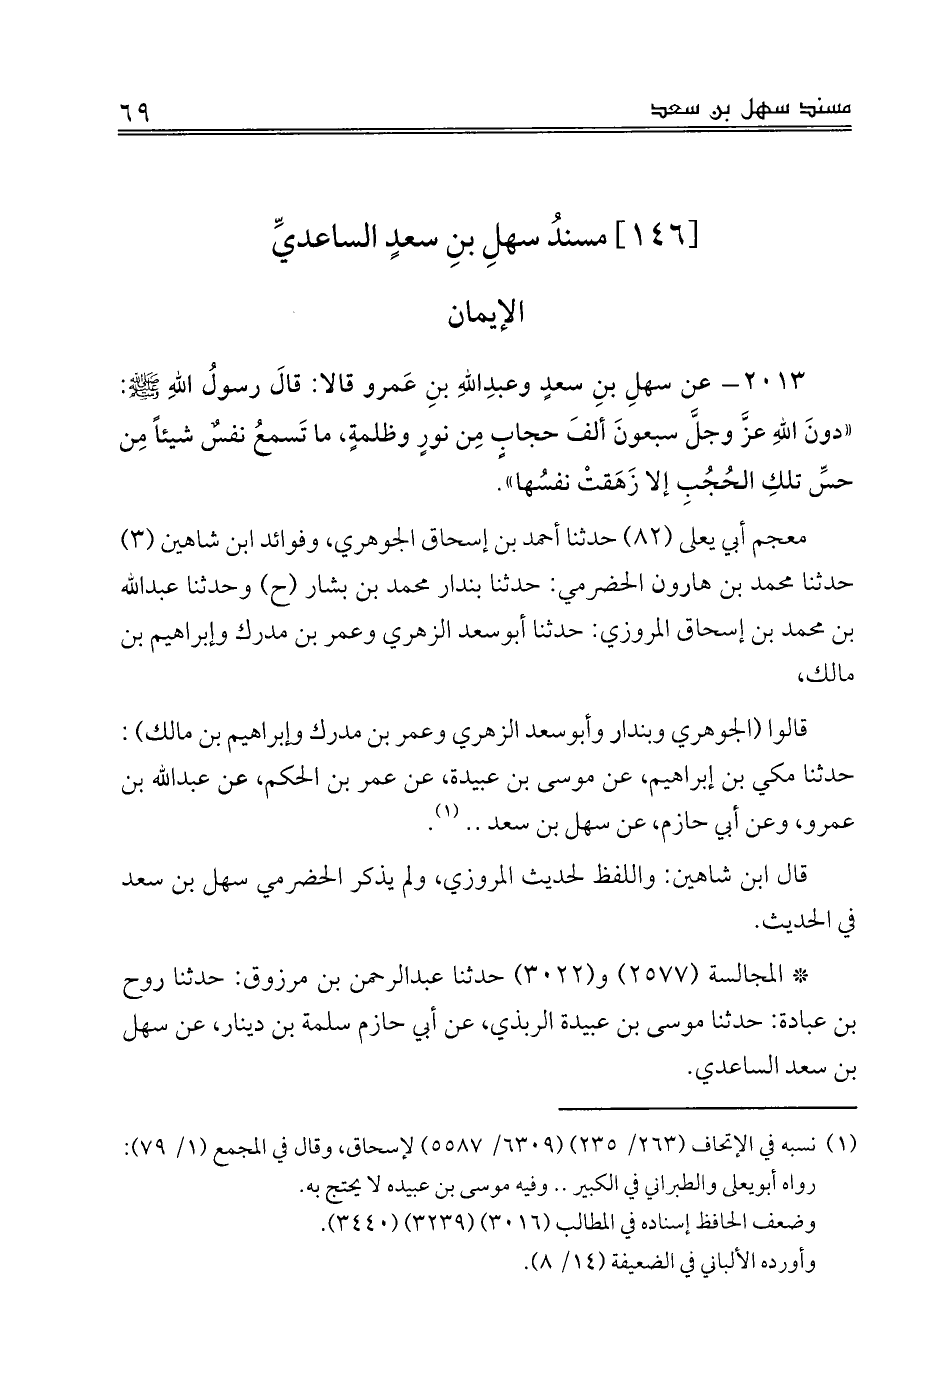 مسند سهل بن سعد ٦٩
[١٤٦] مسندُ سهلِ بنِ سعدٍ الساعديِّ
الإيمان
٢٠١٣ـ عن سهلِ بنِ سعدٍ وعبدِاللهِ بنِ عَمرو قالا: قالَ رسولُ اللهِ ﷺ:
«دونَ اللهِ عزَّ وجلَّ سبعونَ ألفَ حجابٍ مِن نورٍ وظلمةٍ، ما تَسمعُ نفسٌ شيئاً مِن
حسِّ تلكِ الحُجُبِ إلا زَهَقتْ نفسُها».
معجم أبي يعلى (٨٢) حدثنا أحمد بن إسحاق الجوهري، وفوائد ابن شاهين (٣)
حدثنا محمد بن هارون الحضرمي: حدثنا بندار محمد بن بشار (ح) وحدثنا عبدالله
بن محمد بن إسحاق المروزي: حدثنا أبوسعد الزهري وعمر بن مدرك وإبراهيم بن
مالك،
قالوا (الجوهري وبندار وأبوسعد الزهري وعمر بن مدرك وإبراهيم بن مالك) :
حدثنا مكي بن إبراهيم، عن موسى بن عبيدة، عن عمر بن الحكم، عن عبدالله بن
عمرو، وعن أبي حازم، عن سهل بن سعد .. (١).
قال ابن شاهين: واللفظ لحديث المروزي، ولم يذكر الحضرمي سهل بن سعد
في الحديث.
* المجالسة (٢٥٧٧) و(٣٠٢٢) حدثنا عبدالرحمن بن مرزوق: حدثنا روح
بن عبادة: حدثنا موسى بن عبيدة الربذي، عن أبي حازم سلمة بن دينار، عن سهل
بن سعد الساعدي.
(١) نسبه في الإتحاف (٢٦٣/ ٢٣٥) (٦٣٠٩/ ٥٥٨٧) لإسحاق، وقال في المجمع (١/ ٧٩):
رواه أبويعلى والطبراني في الكبير .. وفيه موسى بن عبيده لا يحتج به.
وضعف الحافظ إسناده في المطالب (٣٠١٦) (٣٢٣٩) (٣٤٤٠).
وأورده الألباني في الضعيفة (١٤/ ٨).